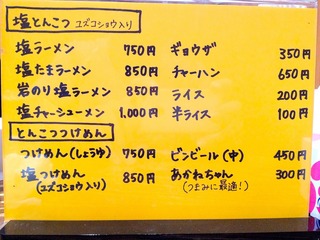 塩とんこつ ユズコショウ入り
塩ラーメン 750円
塩たまラーメン 850円
岩のり塩ラーメン 850円
塩チャーシューメン 1,000円
とんこつつけめん
つけめん(しょうゆ) 750円
塩つけめん 850円
(ユズコショウ入り)
ギョウザ 350円
チャーハン 650円
ライス 200円
半ライス 100円
ビンビール(中) 450円
あかねちゃん 300円
(つまみに最適!)